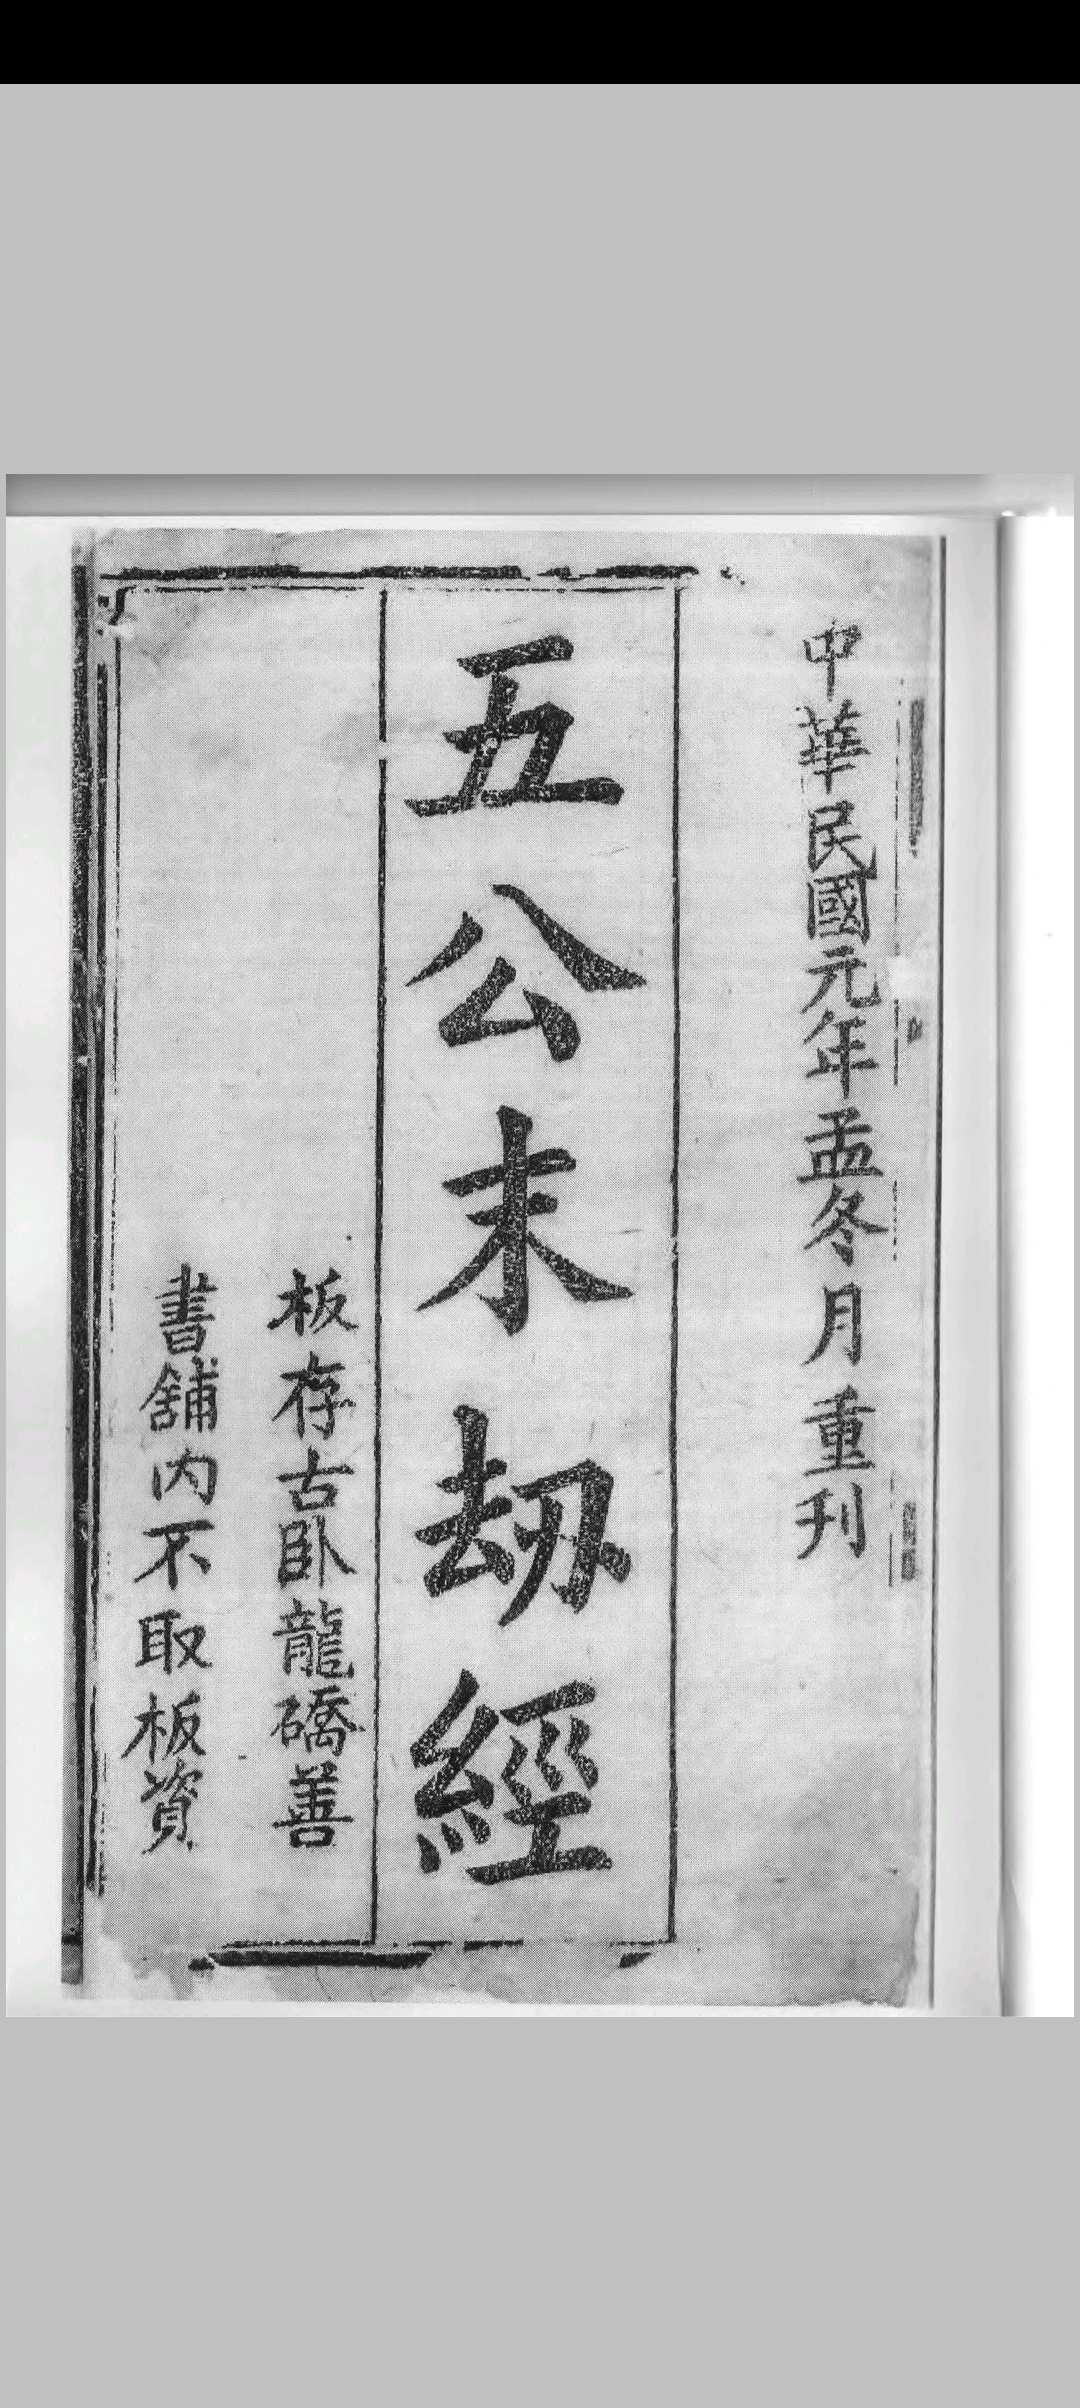 中華民國元年孟冬月重刊
五公末刼經
板存古卧龍礄善
書舖内不取板資